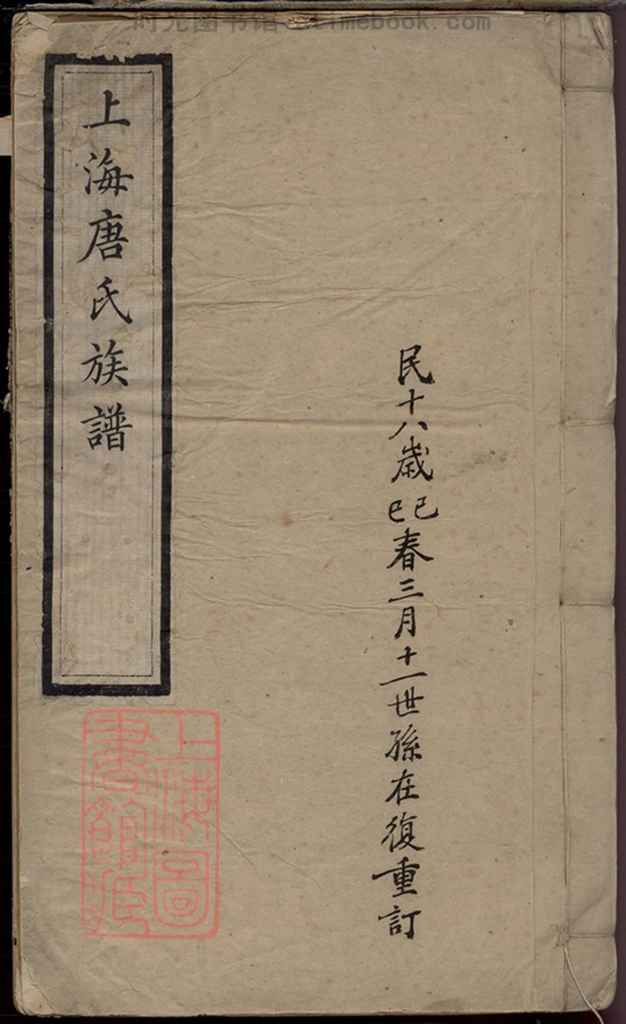 时光图书馆
timebook.com
民十八歲己巳春三月十一世孫在復重訂
上海唐氏族譜
上海圖
書館藏